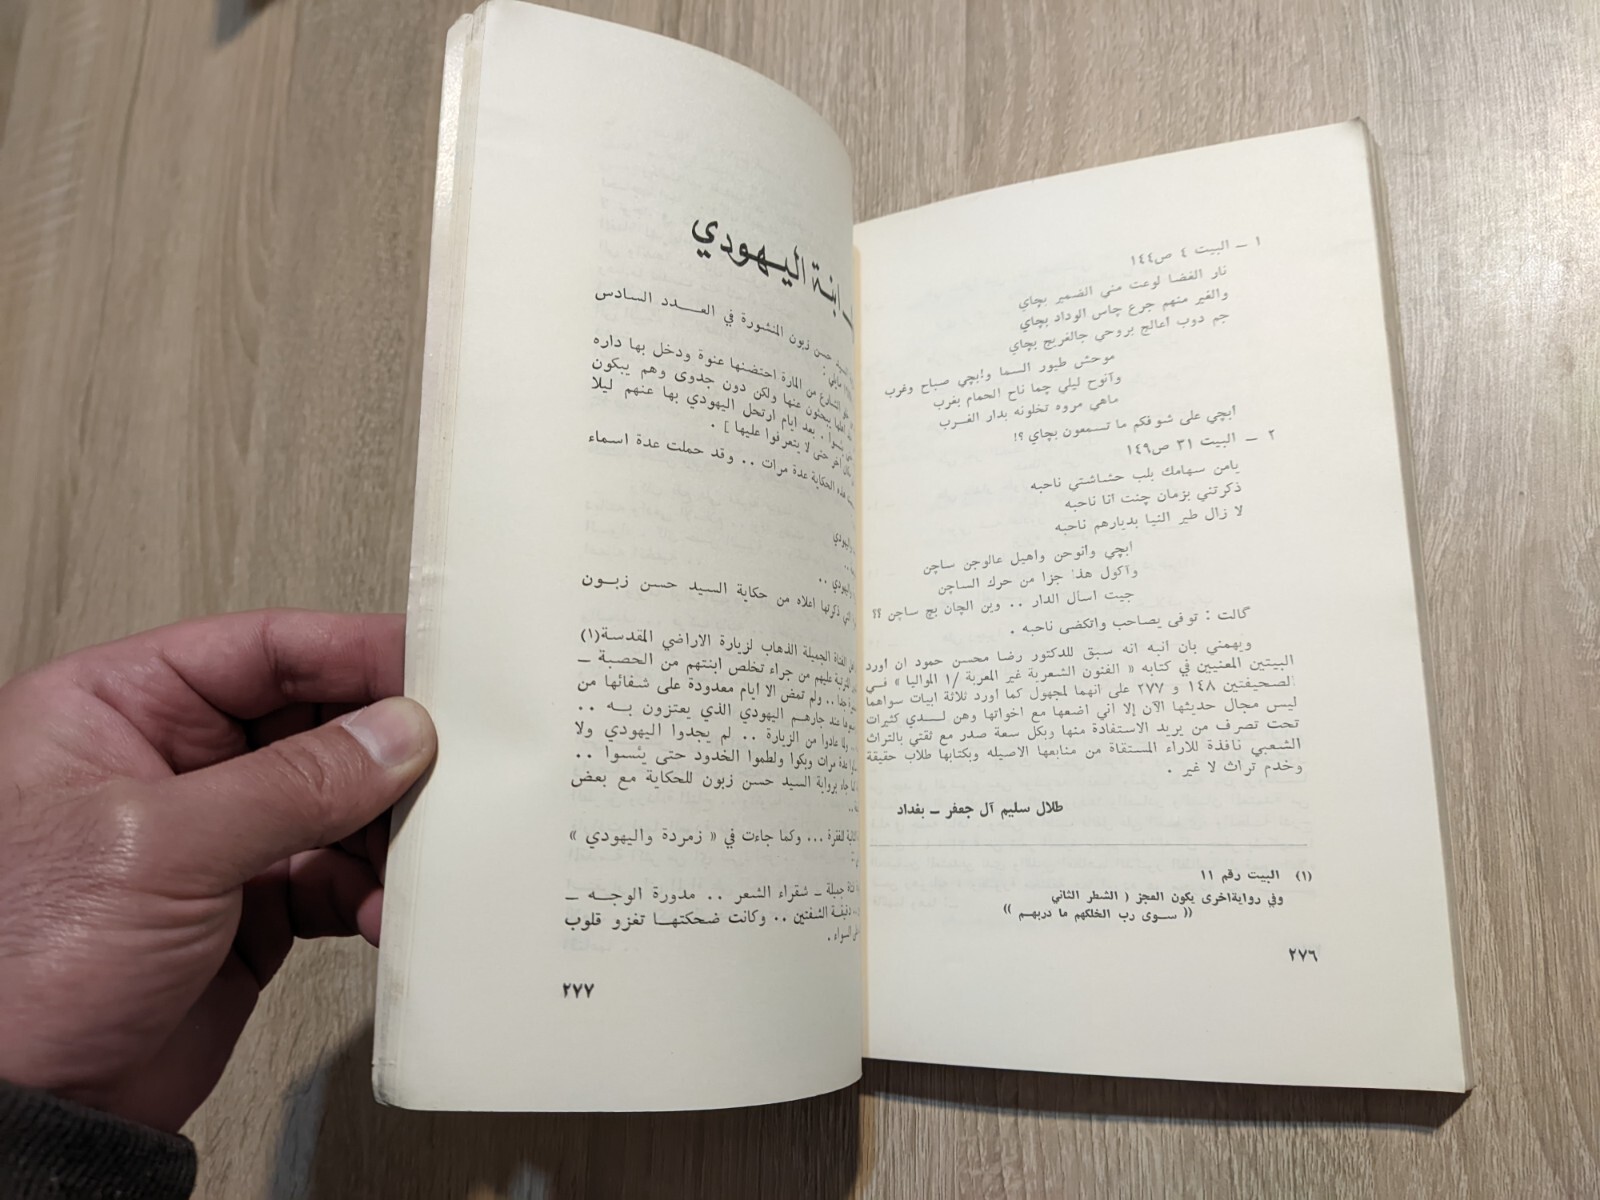 ١ ــ البيت ٤ ص١٤٤
نار الغضا لوعت مني الضمير بچاي
والغير منهم جرع چاس الوداد بچاي
جم دوب اعالج بروحي جالفريج بچاي
موحش طيور السما وابچي صباح وغرب
وآنوح ليلي چما ناح الحمام بغرب
ماهي مروه تخلونه بدار الغرب
ابچي على شوفكم ما تسمعون بچاي ؟!
٢ ــ البيت ٣١ ص١٤٩
يامن سهامك بلب حشاشتي ناحبه
ذكرتني بزمان چنت انا ناحبه
لا زال طير النيا بديارهم ناحبه
ابچي وانوحن واهيل عالوجن ساچن
وآكول هذا جزا من حرك الساچن
جيت اسال الدار .. وين الچان بچ ساچن ؟؟
گالت : توفى يصاحب واتكضى ناحبه .
ويهمني بان انبه انه سبق للدكتور رضا محسن حمود ان اورد
البيتين المعنيين في كتابه « الفنون الشعرية غير المعربة /١ المواليا » في
الصحيفتين ١٤٨ و ٢٧٧ على انهما لمجهول كما اورد ثلاثة ابيات سواهما
ليس مجال حديثها الآن إلا اني اضعها مع اخواتها وهن لدي كثيرات
تحت تصرف من يريد الاستفادة منها وبكل سعة صدر مع ثقتي بالتراث
الشعبي نافذة للاراء المستقاة من منابعها الاصيله وبكتابها طلاب حقيقة
وخدم تراث لا غير .
طلال سليم آل جعفر ــ بغداد
(١) البيت رقم ١١
وفي رواية اخرى يكون العجز ( الشطر الثاني
(( سوى رب الخلكهم ما دربهم ))
٢٧٦
ــ ابنة اليهودي
حسن زبون المنشورة في العدد السادس
الشارع من المارة احتضنها عنوة ودخل بها داره
اهلها يبحثون عنها ولكن دون جدوى وهم يبكون
بعد ايام ارتحل اليهودي بها عنهم ليلا
آخر حتى لا يتعرفوا عليها ] .
هذه الحكاية عدة مرات .. وقد حملت عدة اسماء
واليهودي
واليهودي ..
التي ذكرتها اعلاه من حكاية السيد حسن زبون
الفتاة الجميلة الذهاب لزيارة الاراضي المقدسة(١)
عليهم من جراء تخلص ابنتهم من الحصبة ــ
ولم تمض الا ايام معدودة على شفائها من
عند جارهم اليهودي الذي يعتزون به ..
ولما عادوا من الزيارة .. لم يجدوا اليهودي ولا
عدة مرات وبكوا ولطموا الخدود حتى يئسوا ..
جاء برواية السيد حسن زبون للحكاية مع بعض
للفقرة ... وكما جاءت في « زمردة واليهودي »
جميلة ــ شقراء الشعر .. مدورة الوجه ــ
الشفتين .. وكانت ضحكتها تغزو قلوب
السواء .
٢٧٧